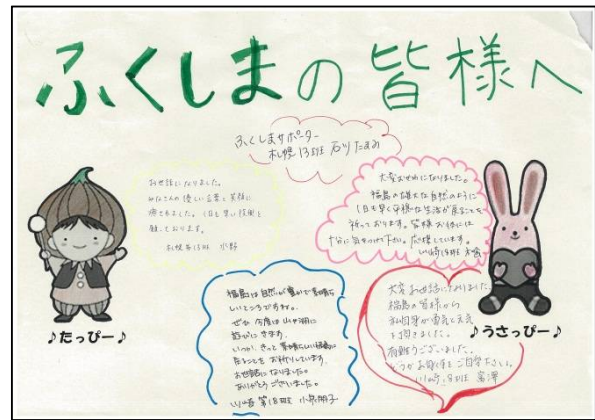 ふくしまの皆様へ
ふくしまサポーター
札幌13班
お世話になりました。
みなさんの優しい言葉と笑顔に
癒されました。1日も早い復興を
願っております。
札幌市13班 小野
大変お世話になりました。
福島の雄大な自然のように
1日も早く平穏な生活が戻ることを
祈っております。皆様お体には
十分に気をつけて下さい。応援しています。
川崎18班
♪たっぴー♪
♪うさっぴー♪
福島は自然が豊かで素晴ら
しいところですね。
ぜひ今度は山や湖に
遊びにきます。
いつか、きっと素晴らしい福島に
戻ることをお祈りしています。
お世話になりました。
ありがとうございました。
川崎 第18班 小泉朋子
大変お世話になりました。
福島の皆様から
私自身が勇気と元気
を頂きました。
有難うございました。
どうかお身体をご自愛下さい。
川崎18班 富澤